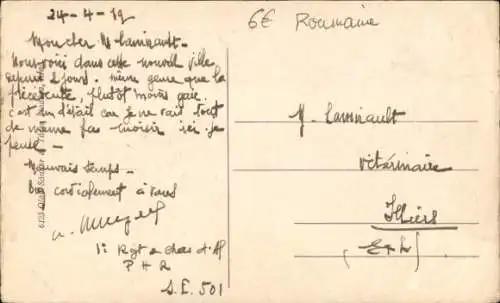 24-4-19
6€ Roumaine
Mon cher M. Laminault.
Nous voici dans cette nouvelle ville
depuis 2 jours. même genre que la
précédente, plutôt moins gaie
c'est un détail car je ne vais tout
de même pas moisir ici je
pense -
Mauvais temps -
Bien cordialement à vous
1e Rgt a chas d'Af
P H R
S.E. 501
M. Laminault
Vétérinaire
Illiers
(E & L)